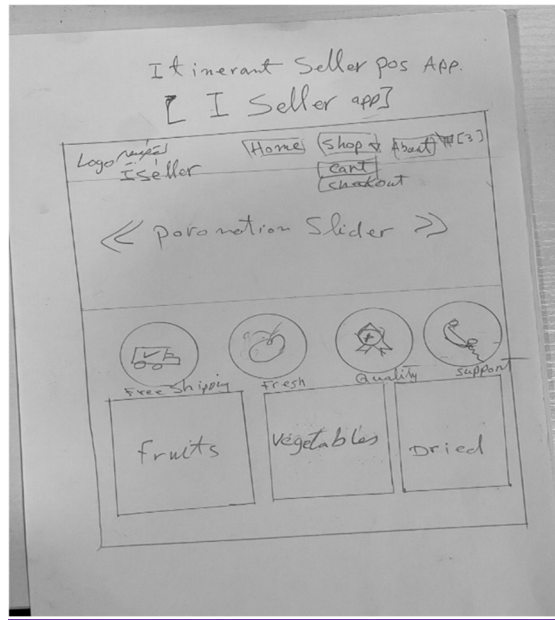 Itinerant Seller pos App.
[ I Seller app]
Logo
ISeller
Home Shop About [3]
cart
chekout
<< poromotion Slider >>
Free Shipping Fresh Quality support
fruits vegetables Dried